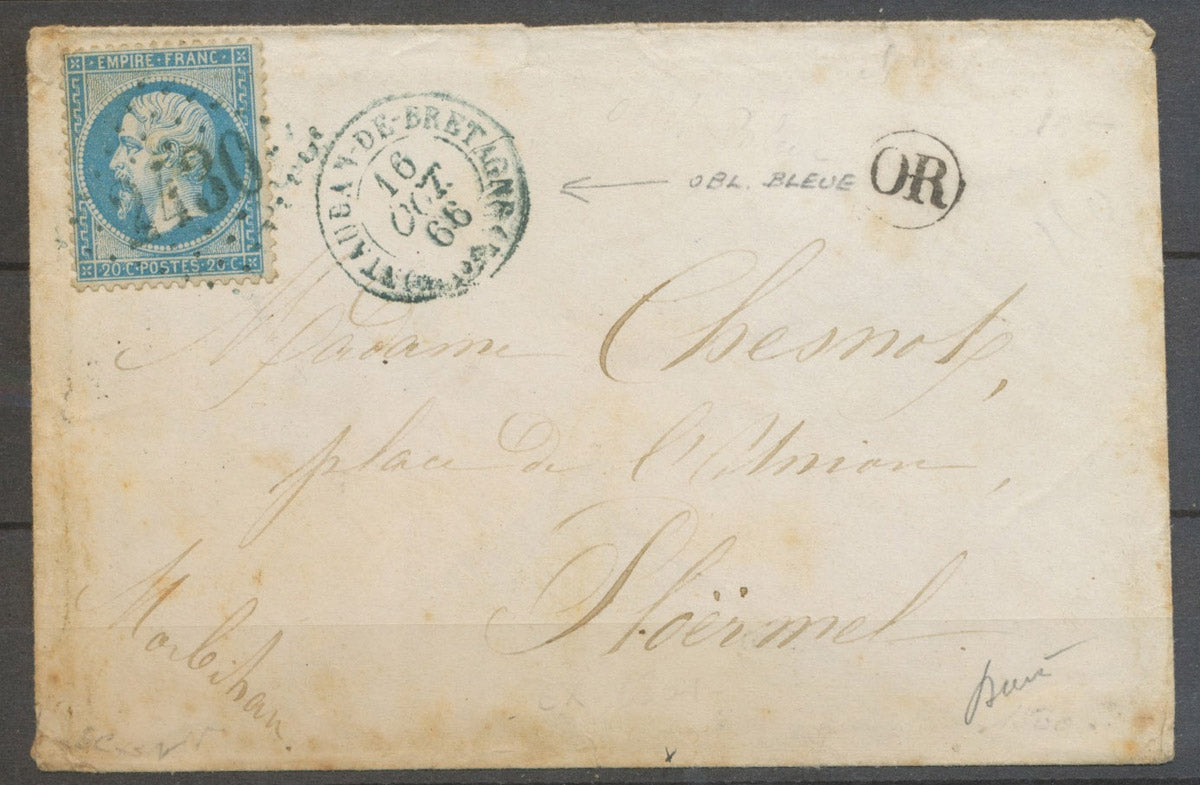 EMPIRE · FRANC ·
2430
20·C·POSTES·20·C·
MONTAUBAN-DE-BRETAGNE
16
OCT
66
OBL. BLEUE
OR
Madame Chesnot,
place de l'Union,
Ploërmel
Morbihan.